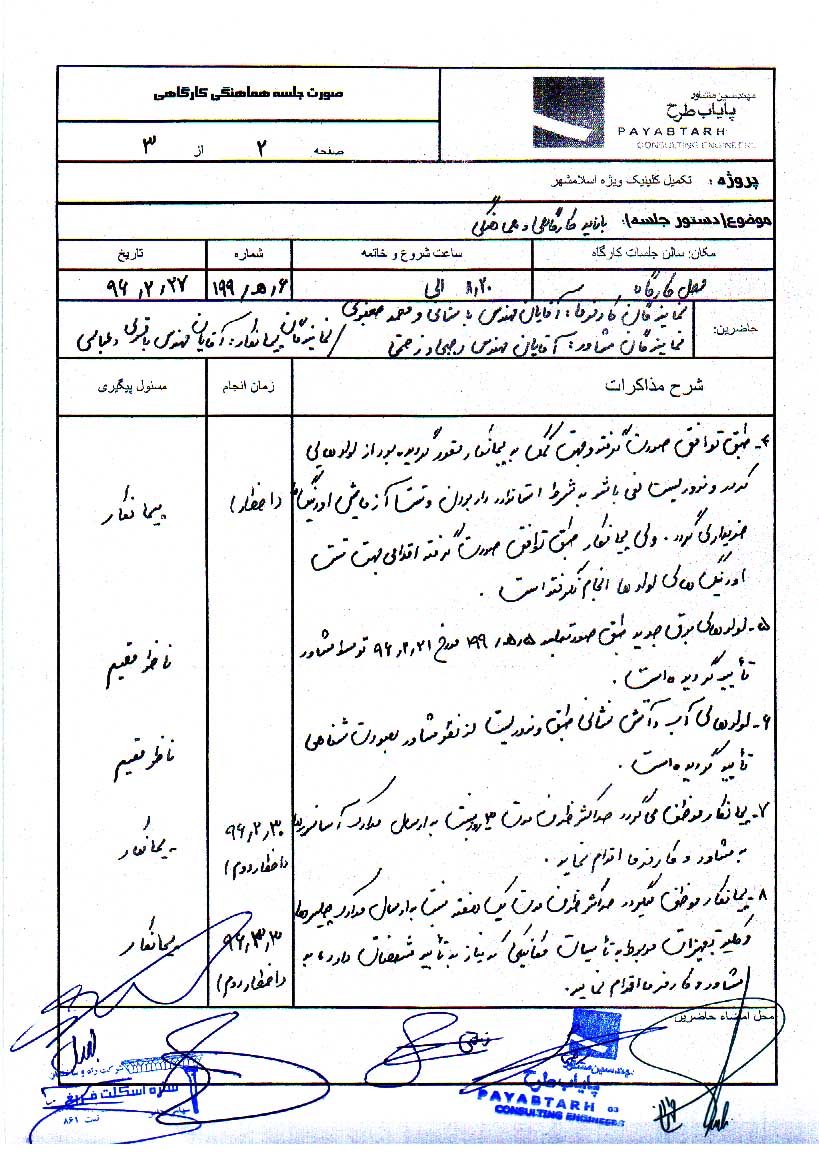 صورت جلسه هماهنگی کارگاهی
مهندسین مشاور
پایاب طرح
PAYABTARH
CONSULTING ENGINEERS
صفحه ۲ از ۳
پروژه : تکمیل کلینیک ویژه اسلامشهر
موضوع(دستور جلسه): بازدید کارگاهی و هماهنگی
مکان: سالن جلسات کارگاه
ساعت شروع و خاتمه
شماره
تاریخ
محل کارگاه
۸,۳۰ الی
۱۹۹,ه,۶
۹۶,۲,۲۷
حاضرین:
نمایندگان کارفرما: آقایان مهندس باستانی و محمد صفری
نمایندگان مشاور: آقایان مهندس رجبی و زحمتی / نمایندگان پیمانکار: آقایان مهندس باقری و عباسی
شرح مذاکرات
زمان انجام
مسئول پیگیری
۴- طبق توافق صورت گرفته و جهت کمک به پیمانکار مقرر گردیده بود از لوله هایی
که در وندور لیست نمی باشد به شرط استاندارد دار بودن و تست آزمایش اورینگ ها
خریداری گردد. ولی پیمانکار طبق توافق صورت گرفته اقدامی جهت تست
اورینگ های لوله ها انجام نگرفته است.
(اخطار)
پیمانکار
۵- لوله های برق جدید طبق صورتجلسه ۱۹۹,ه,۵ مورخ ۹۶,۲,۲۱ توسط مشاور
تأیید گردیده است.
ناظر مقیم
۶- لوله های آب و آتش نشانی طبق وندور لیست از نظر مشاور بصورت شفاهی
تأیید گردیده است.
ناظر مقیم
۷- پیمانکار موظف می گردد حداکثر ظرف مدت ۳ روز نسبت به ارسال مدارک آسانسورها
به مشاور و کارفرما اقدام نماید.
۹۶,۲,۳۰
(اخطار دوم)
پیمانکار
۸- پیمانکار موظف میگردد حداکثر ظرف مدت یک هفته نسبت به ارسال مدارک چیلرها
و کلیه تجهیزات مربوط به تأسیسات مکانیکی که نیاز به تأیید مشخصات دارد، به
مشاور و کارفرما اقدام نماید.
۹۶,۳,۳
(اخطار دوم)
پیمانکار
محل امضاء حاضرین
زحمتی
مهندسین مشاور
پایاب طرح
PAYABTARH 03
CONSULTING ENGINEERS
شرکت راه و ساختمان
سازه اسکلت فراغ
ثبت ۸۶۱